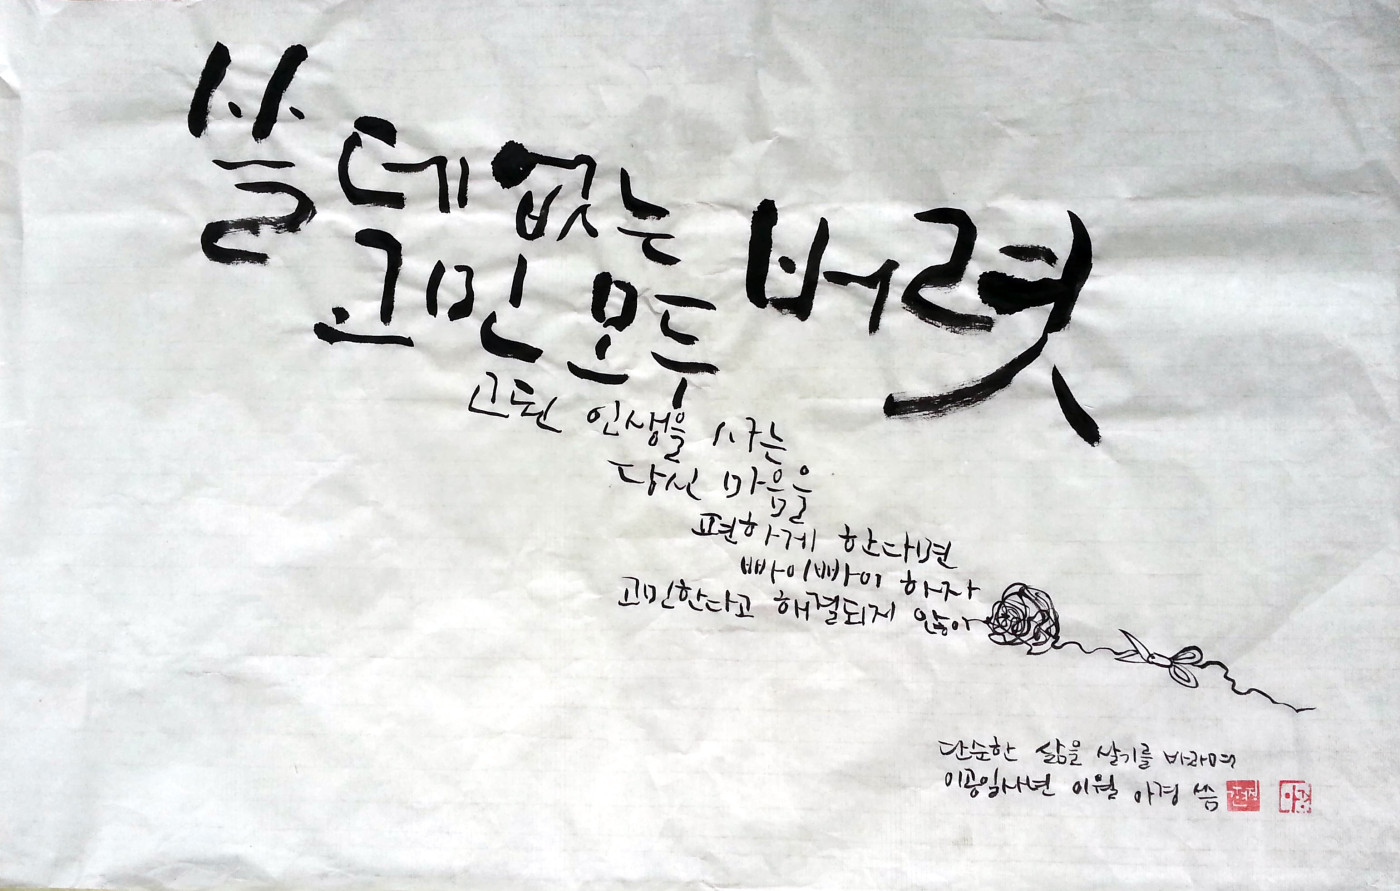 쓸데없는
고민 모두 버렷
고된 인생을 사는
당신 마음을
편하게 한다면
빠이빠이 하자
고민한다고 해결되지 않아
단순한 삶을 살기를 바라며
이공일사년 이월 아경 씀
아경